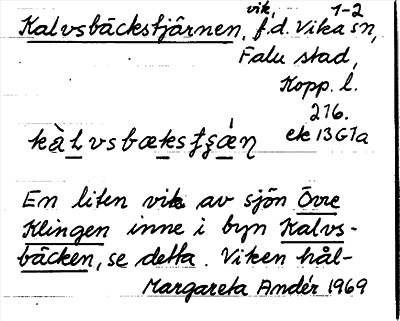 vik, 1-2
Kalvsbäckstjärnen, f.d. Vika sn,
Falu stad,
Kopp. l.
216.
ek 13G7a
En liten vik av sjön Övre
Klingen inne i byn Kalvs-
bäcken, se detta. Viken hål-
Margareta Andér 1969